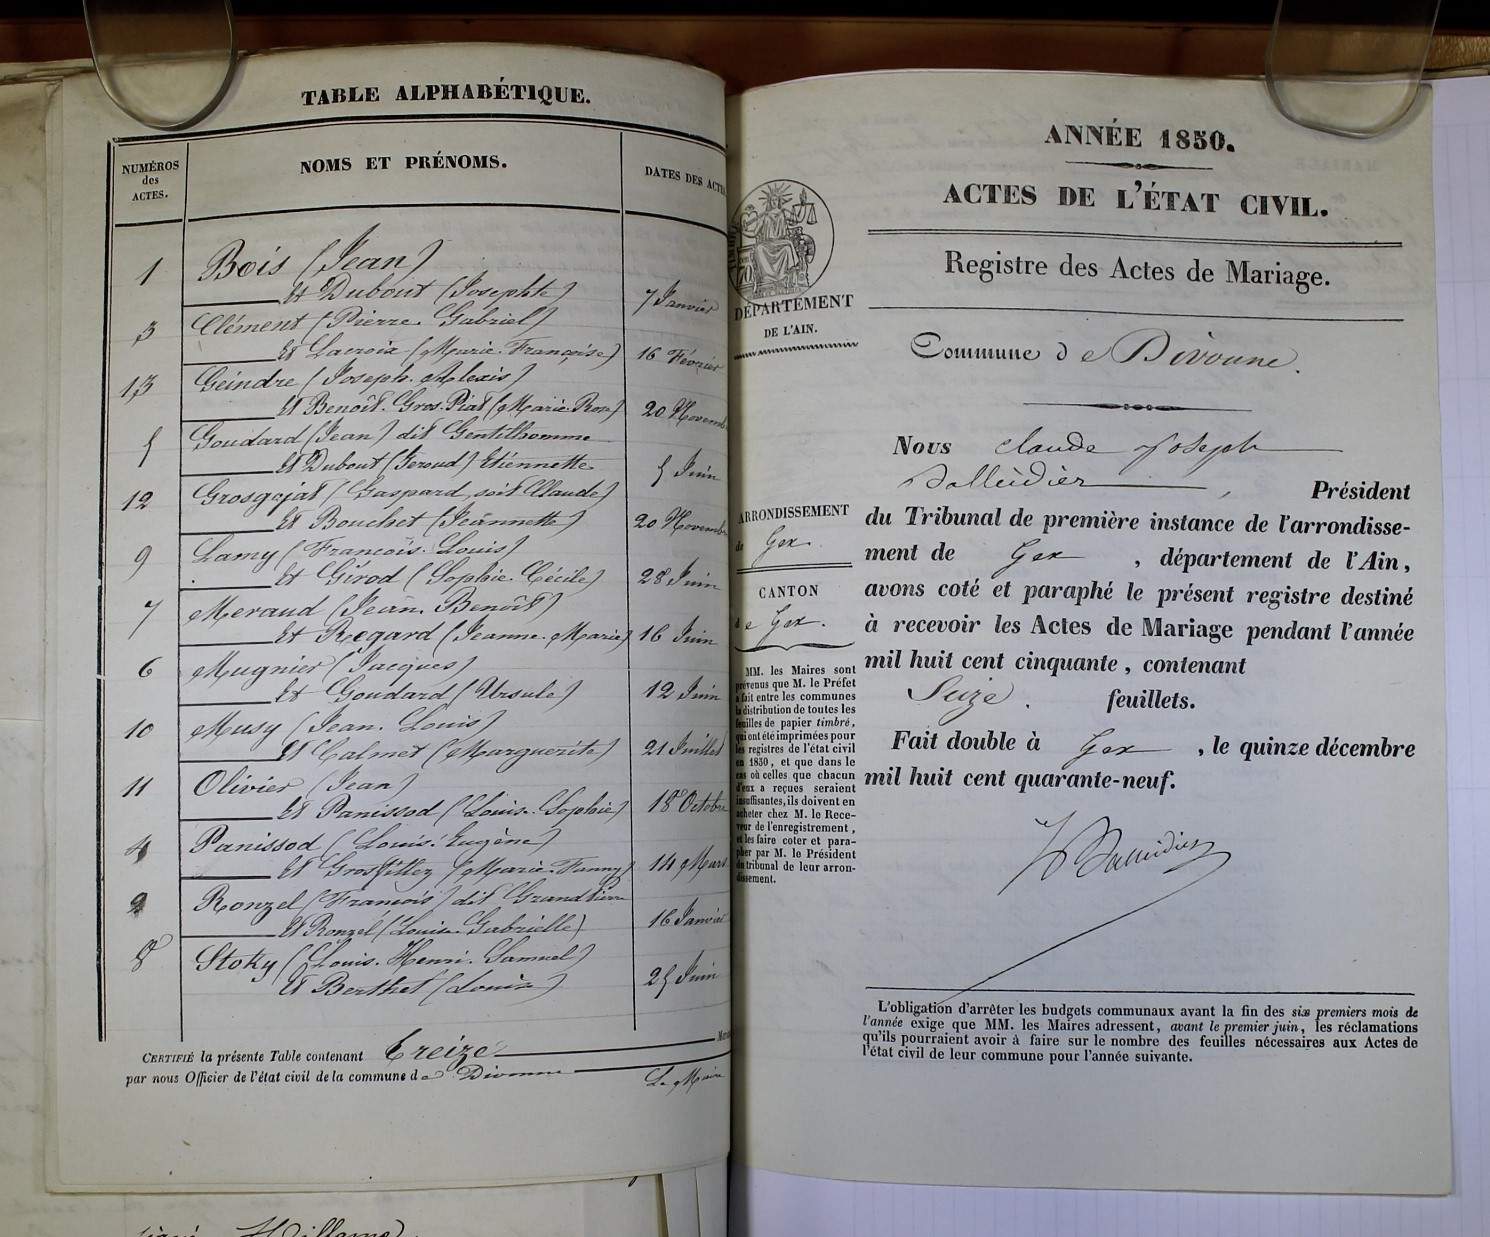 TABLE ALPHABÉTIQUE.
NUMÉROS
des
ACTES.
NOMS ET PRÉNOMS.
DATES DES ACTES
1 Bois (Jean)
Et Dubout (Josephte) 7 Janvier
3 Clément (Pierre. Gabriel)
Et Lacroix (Marie. Françoise) 16 Février
13 Geindre (Joseph. Alexis)
Et Benoît. Gros. Piat (Marie. Rose) 20 Novemb
5 Goudard (Jean) dit Gentilhomme
Et Dubout (Geroud) Etiennette 5 Juin
12 Grosgojat (Gaspard, soit Claude)
Et Bouchet (Jeannette) 20 Novemb
9 Lamy (François. Louis)
Et Girod (Sophie. Cécile) 28 Juin
7 Meraud (Jean. Benoît)
Et Regard (Jeanne. Marie) 16 Juin
6 Mugnier (Jacques)
Et Goudard (Ursule) 12 Juin
10 Musy (Jean. Louis)
Et Calmet (Marguerite) 21 Juillet
11 Olivier (Jean)
Et Panissod (Louise. Sophie) 18 Octobre
4 Panissod (Louis. Eugène)
Et Grosfillez (Marie. Fanny) 14 Mars
2 Ronzel (François) dit Grand
Et Ronzel (Louise. Gabrielle) 16 Janvier
8 Stoky (Louis. Henri. Samuel)
Et Berthet (Louise) 25 Juin
CERTIFIÉ la présente Table contenant Treize
par nous Officier de l'état civil de la commune de Divonne
Le Maire
ANNÉE 1850.
ACTES DE L'ÉTAT CIVIL.
Registre des Actes de Mariage.
DÉPARTEMENT
DE L'AIN.
Commune de Divonne.
ARRONDISSEMENT
de Gex.
CANTON
de Gex.
MM. les Maires sont
prévenus que M. le Préfet
a fait entre les communes
la distribution de toutes les
feuilles de papier timbré,
qui ont été imprimées pour
les registres de l'état civil
en 1850, et que dans le
cas où celles que chacun
d'eux a reçues seraient
insuffisantes, ils doivent en
acheter chez M. le Rece-
veur de l'enregistrement,
et les faire coter et para-
pher par M. le Président
du tribunal de leur arron-
dissement.
Nous Claude Joseph
, Président
du Tribunal de première instance de l'arrondisse-
ment de Gex , département de l'Ain,
avons coté et paraphé le présent registre destiné
à recevoir les Actes de Mariage pendant l'année
mil huit cent cinquante, contenant
Seize. feuillets.
Fait double à Gex , le quinze décembre
mil huit cent quarante-neuf.
L'obligation d'arrêter les budgets communaux avant la fin des six premiers mois de
l'année exige que MM. les Maires adressent, avant le premier juin, les réclamations
qu'ils pourraient avoir à faire sur le nombre des feuilles nécessaires aux Actes de
l'état civil de leur commune pour l'année suivante.